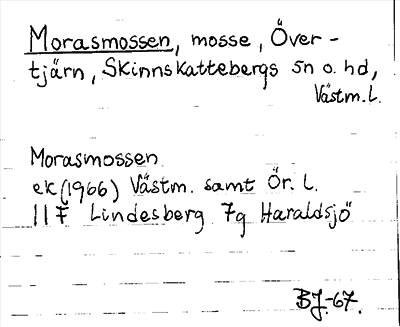 Morasmossen, mosse, Över-
tjärn, Skinnskattebergs sn o. hd,
Västm. l.
Morasmossen
ek (1966) Västm. samt Ör. l.
11 F Lindesberg 7g Haraldsjö
BJ-67.